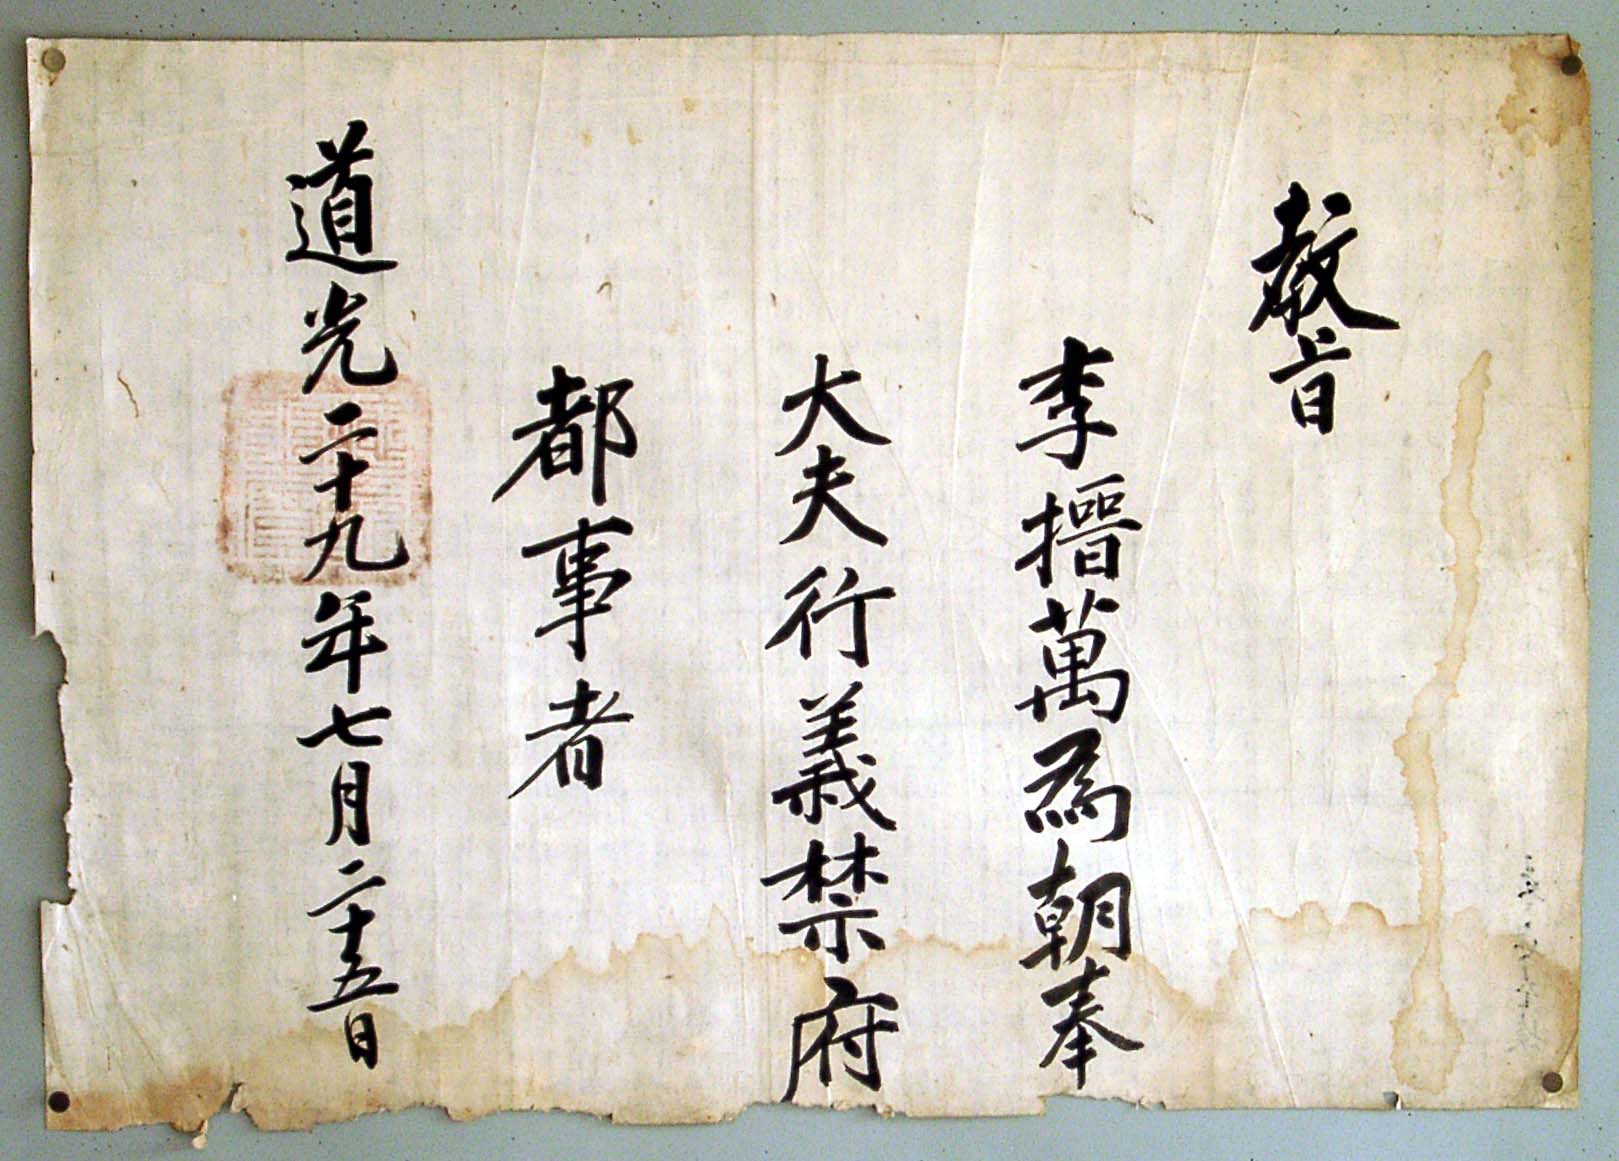 敎旨
李搢萬爲朝奉
大夫行義禁府
都事者
道光二十九年七月二十五日